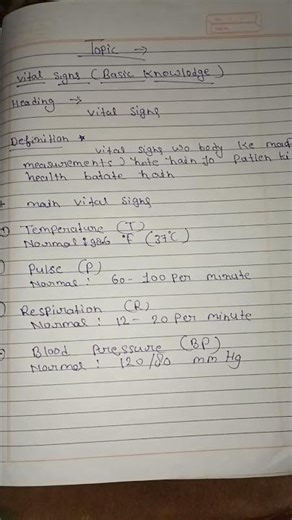 Topic →
vital signs (Basic Knowladge)
Heading →
vital signs
Definition *
vital signs wo body ke
measurements hote hain jo patien ki
health batate hain
main vital signs
Temperature (T)
Normal: 98.6 °F (37°C)
Pulse (P)
Normal: 60-100 per minute
Respiration (R)
Normal: 12-20 per minute
Blood Pressure (BP)
Normal: 120/80 mm Hg